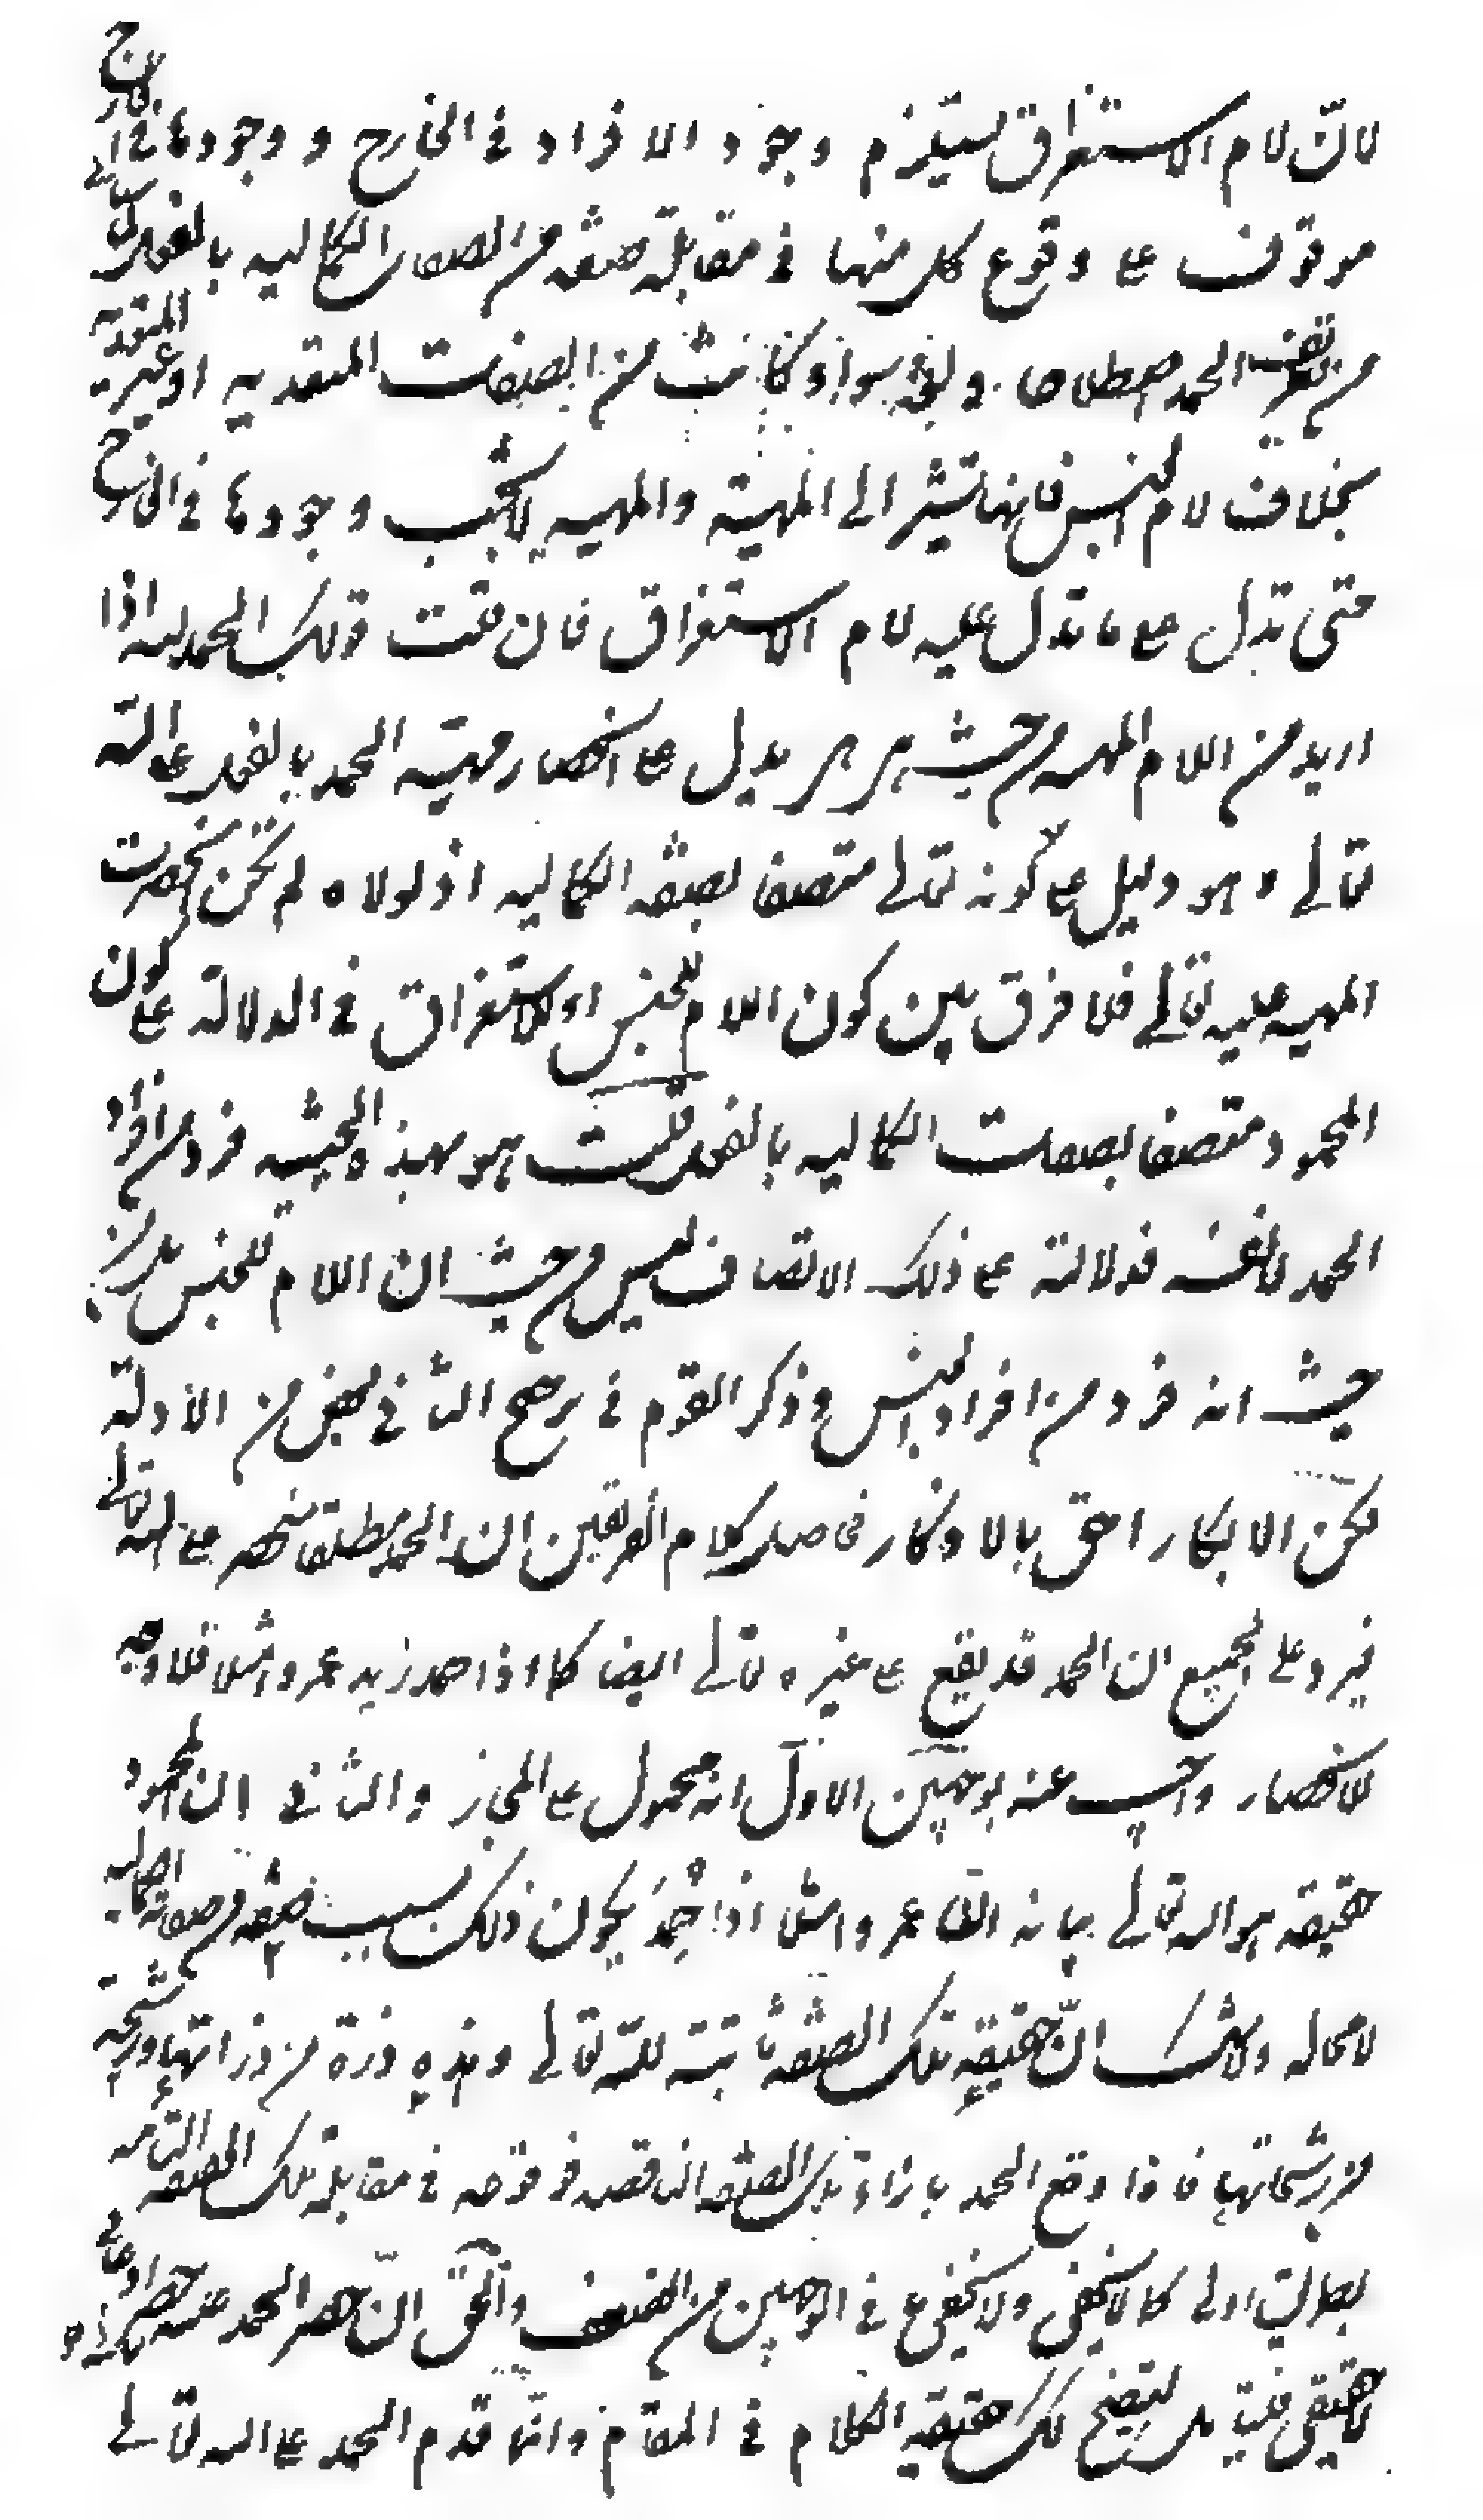 لانّ لام الاستغراق يستلزم وجود الافراد فى الخارج و وجودها فى الخارج
موقوف على وقوع كل منها فى مقابلة صفة من الصفات الكماليه بالفعل
من تعريف الحمد اصطلاحا ولغة سواء كانت من الصفات المتعديه او غير المتعدية
بخلاف لام الجنس فانها تشير الى المهية والمهيه لا يجب وجودها فى الخارج
حتى تدل على ما تدل عليه لام الاستغراق فان قلت قولك الحمد لله اذا
اريد من اللام المهيه من حيث هى هى يدل على انحصار مهية الحمد بالفعل على الله
تعالى وهو دليل على كونه تعالى متصفا بصفة الكماليه اذ لولاه لم تكن منحصرت
المهيه عليه تعالى فلا فرق بين كون اللام للجنس او للاستغراق فى الدلالة على كون
المحمود متصفا بصفات الكماليه بالفعل قلت هو بهذه الحيثيه فرد من افراد
الحمد فدلالته على ذلك الاتصاف ليس من حيث ان اللام للجنس بل من
حيث انه فرد من افراد الجنس وذكر القوم فى ترجيح الثانى بعض من الادلة
لكن الابكار احق بالاذكار فحاصل كلام الفريقين ان الحمد مطلقا منحصر على الله تعالى
فيرد على الجميع ان الحمد قد يقع على غيره تعالى ايضا كما اذا حمد زيد عمروا مثلا فلا وجه
للانحصار واجيب عنه بوجهين الاول انه محمول على المجاز والثانى ان المحمود
حقيقة هو الله تعالى بيانه انّ عمروا مثلا اذا حُمِدَ يكون ذلك بسبب صفة من صفاته
لا محاله ولا شك انّ حقيقة تلك الصفة ثابتة لله تعالى وهذه ذرة من ذراتها ورشحة
من رشحاتها فاذا وقع الحمد بازاء تلك الصفة الناقصه فوقوعه فى مقابلة تلك الصفة التامه
بطريق اولى كما لا يخفى ولا يخفى ما فى الوجهين من الضعف والحق انّ حصر الحمد عليه حصر ادعائى
لا حقيقى فليتأمل ليتضح لك حقيقة الكلام فى المقام وانما قدم الحمد على الله تعالى